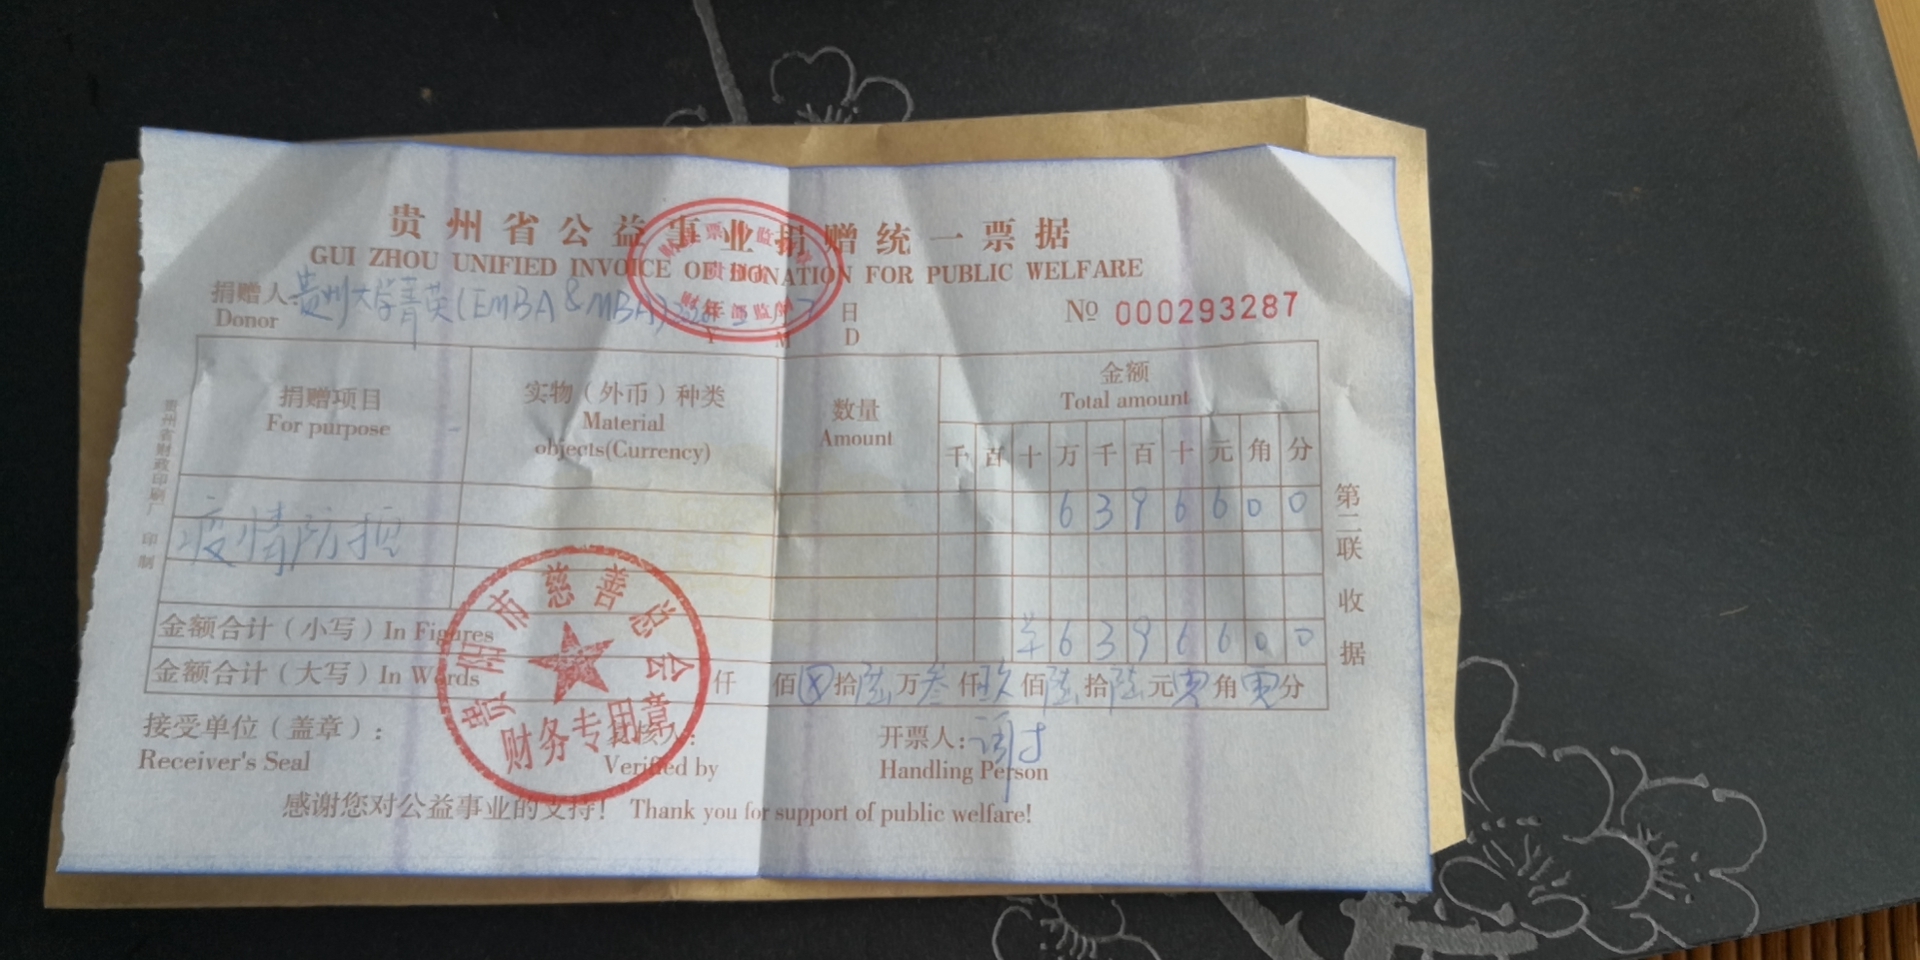 贵州省公益事业捐赠统一票据
GUI ZHOU UNIFIED INVOICE OF DONATION FOR PUBLIC WELFARE
捐赠人 贵州大学菁英(EMBA&MBA) 年 日
Donor Y M D
№ 000293287
捐赠项目 实物（外币）种类 数量 金额
For purpose Material objects(Currency) Amount Total amount
千 百 十 万 千 百 十 元 角 分
疫情防控 6 3 9 6 6 0 0
金额合计（小写）In Figures 羊 6 3 9 6 6 0 0
金额合计（大写）In Words 仟 佰 ⊗ 拾 陆 万 叁 仟 玖 佰 陆 拾 陆 元 角 分
接受单位（盖章）： 复核人： 开票人：
Receiver's Seal Verified by Handling Person
感谢您对公益事业的支持！ Thank you for support of public welfare!
贵阳市慈善总会
财务专用章
第二联 收据
贵州省财政印刷厂 印制